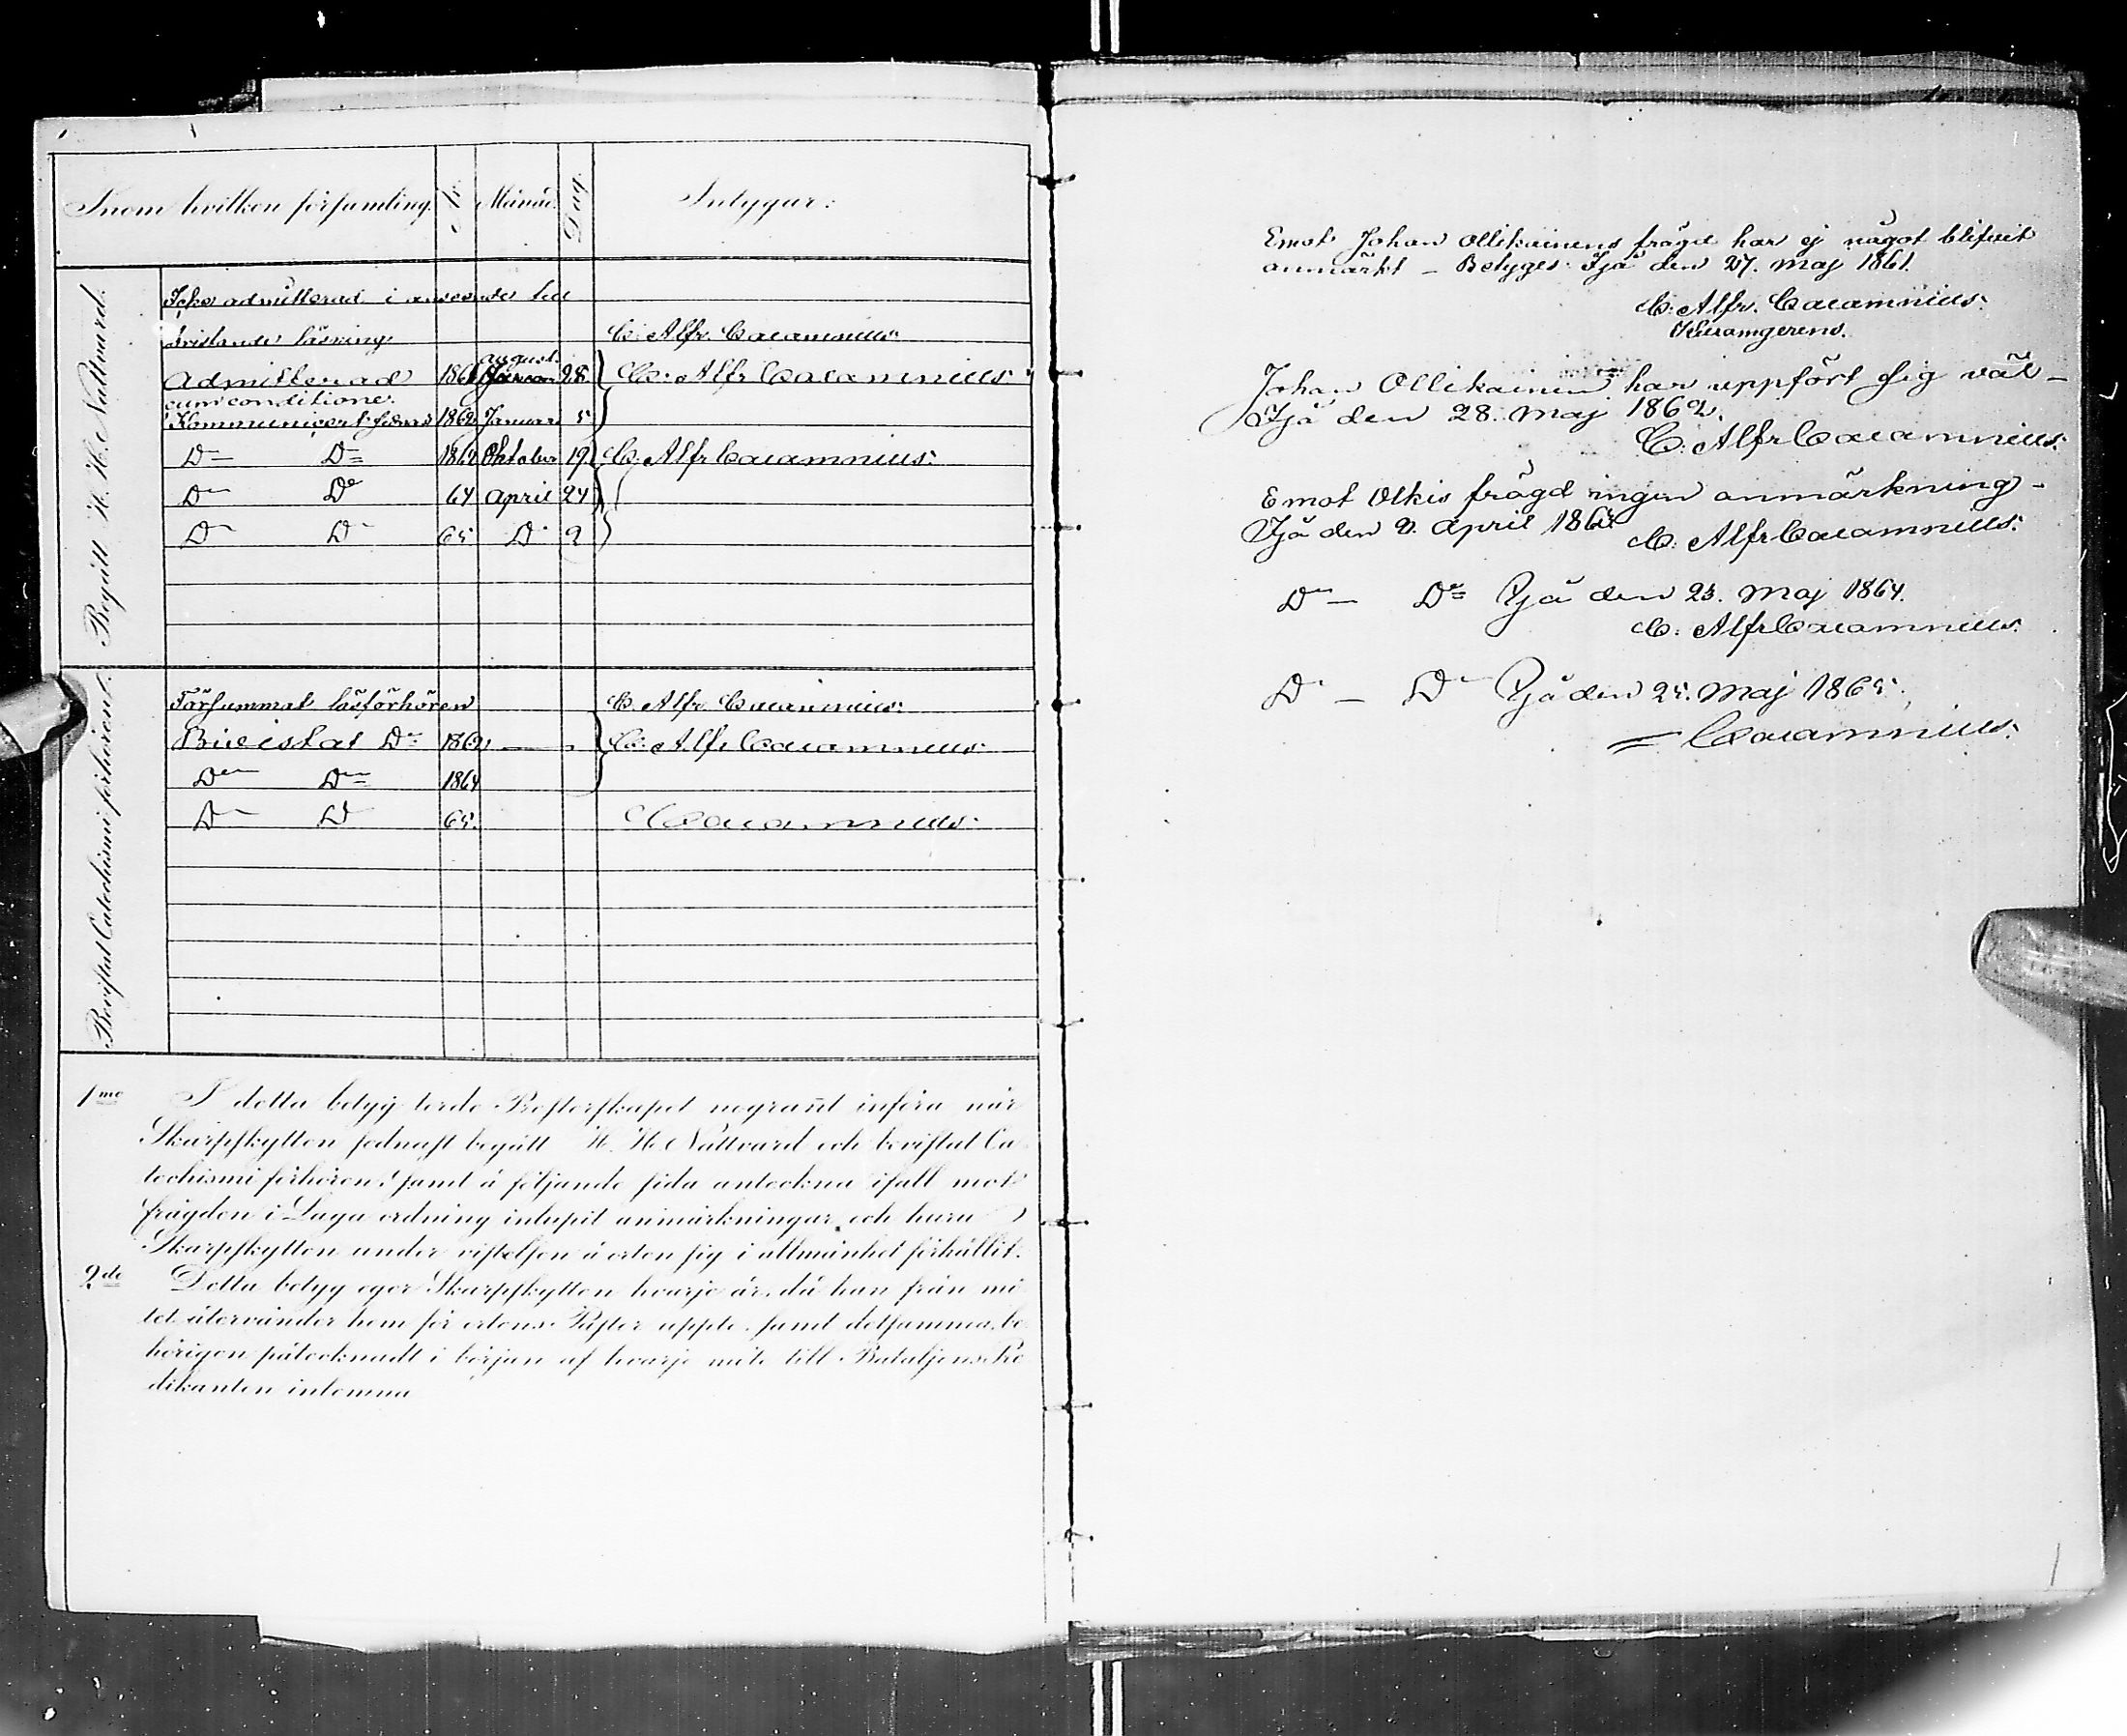 Inom hvilken församling. År. Månad. Dag. Intygar:
Begått H. H. Nattvard.
Icke admitterad i anseende till
bristande läsning C. Alfr. Cacamnius.
august.
Admitterad 1861 28 C. Alfr Cacamnius
cum conditione.
Kommunicerat 1862 Januari 5
D= D= 1862 Oktober 19 C. Alfr Cacamnius:
D D 64 April 24
D D 65 D 9
Bevistat Catechismi förhören
Försummat läsförhören C. Alfr. Cacamnius:
Bivistat D= 1862 C. Alfr Cacamnius
D D= 1864
D D 65. Cacamnius
1mo I detta betyg torde Presterskapet nogrannt införa när
Skarpskytten sednast begått H. H. Nattvard och bevistat Ca-
techismi förhören; samt å följande sida anteckna ifall mot
frägden i Laga ordning inlupit anmärkningar och huru
Skarpskytten under vistelsen å orten sig i allmänhet förhållit.
2do Detta betyg eger Skarpskytten hvarje år, då han från mö
tet återvänder hem för ortens Pastor uppte. samt detsamma, be
hörigen påtecknadt i början af hvarje möte till Bataljons Pre
dikanten inlemna
Emot Johan Ollikainens frägd har ej något blifvit
anmärkt – Betyges Jja den 27. Maj 1861.
C. Alfr. Cacamnius.
Johan Ollikainen har uppfört sig väl –
Jja den 28. Maj 1862.
C. Alfr Cacamnius:
Emot Olkis frägd ingen anmärkning –
Jja den 2. April 1863
C. Alfr Cacamnius:
D – D= Jja den 23. Maj 1864.
C. Alfr Cacamnius.
D – D Jja den 25. Maj 1865.
Cacamnius: